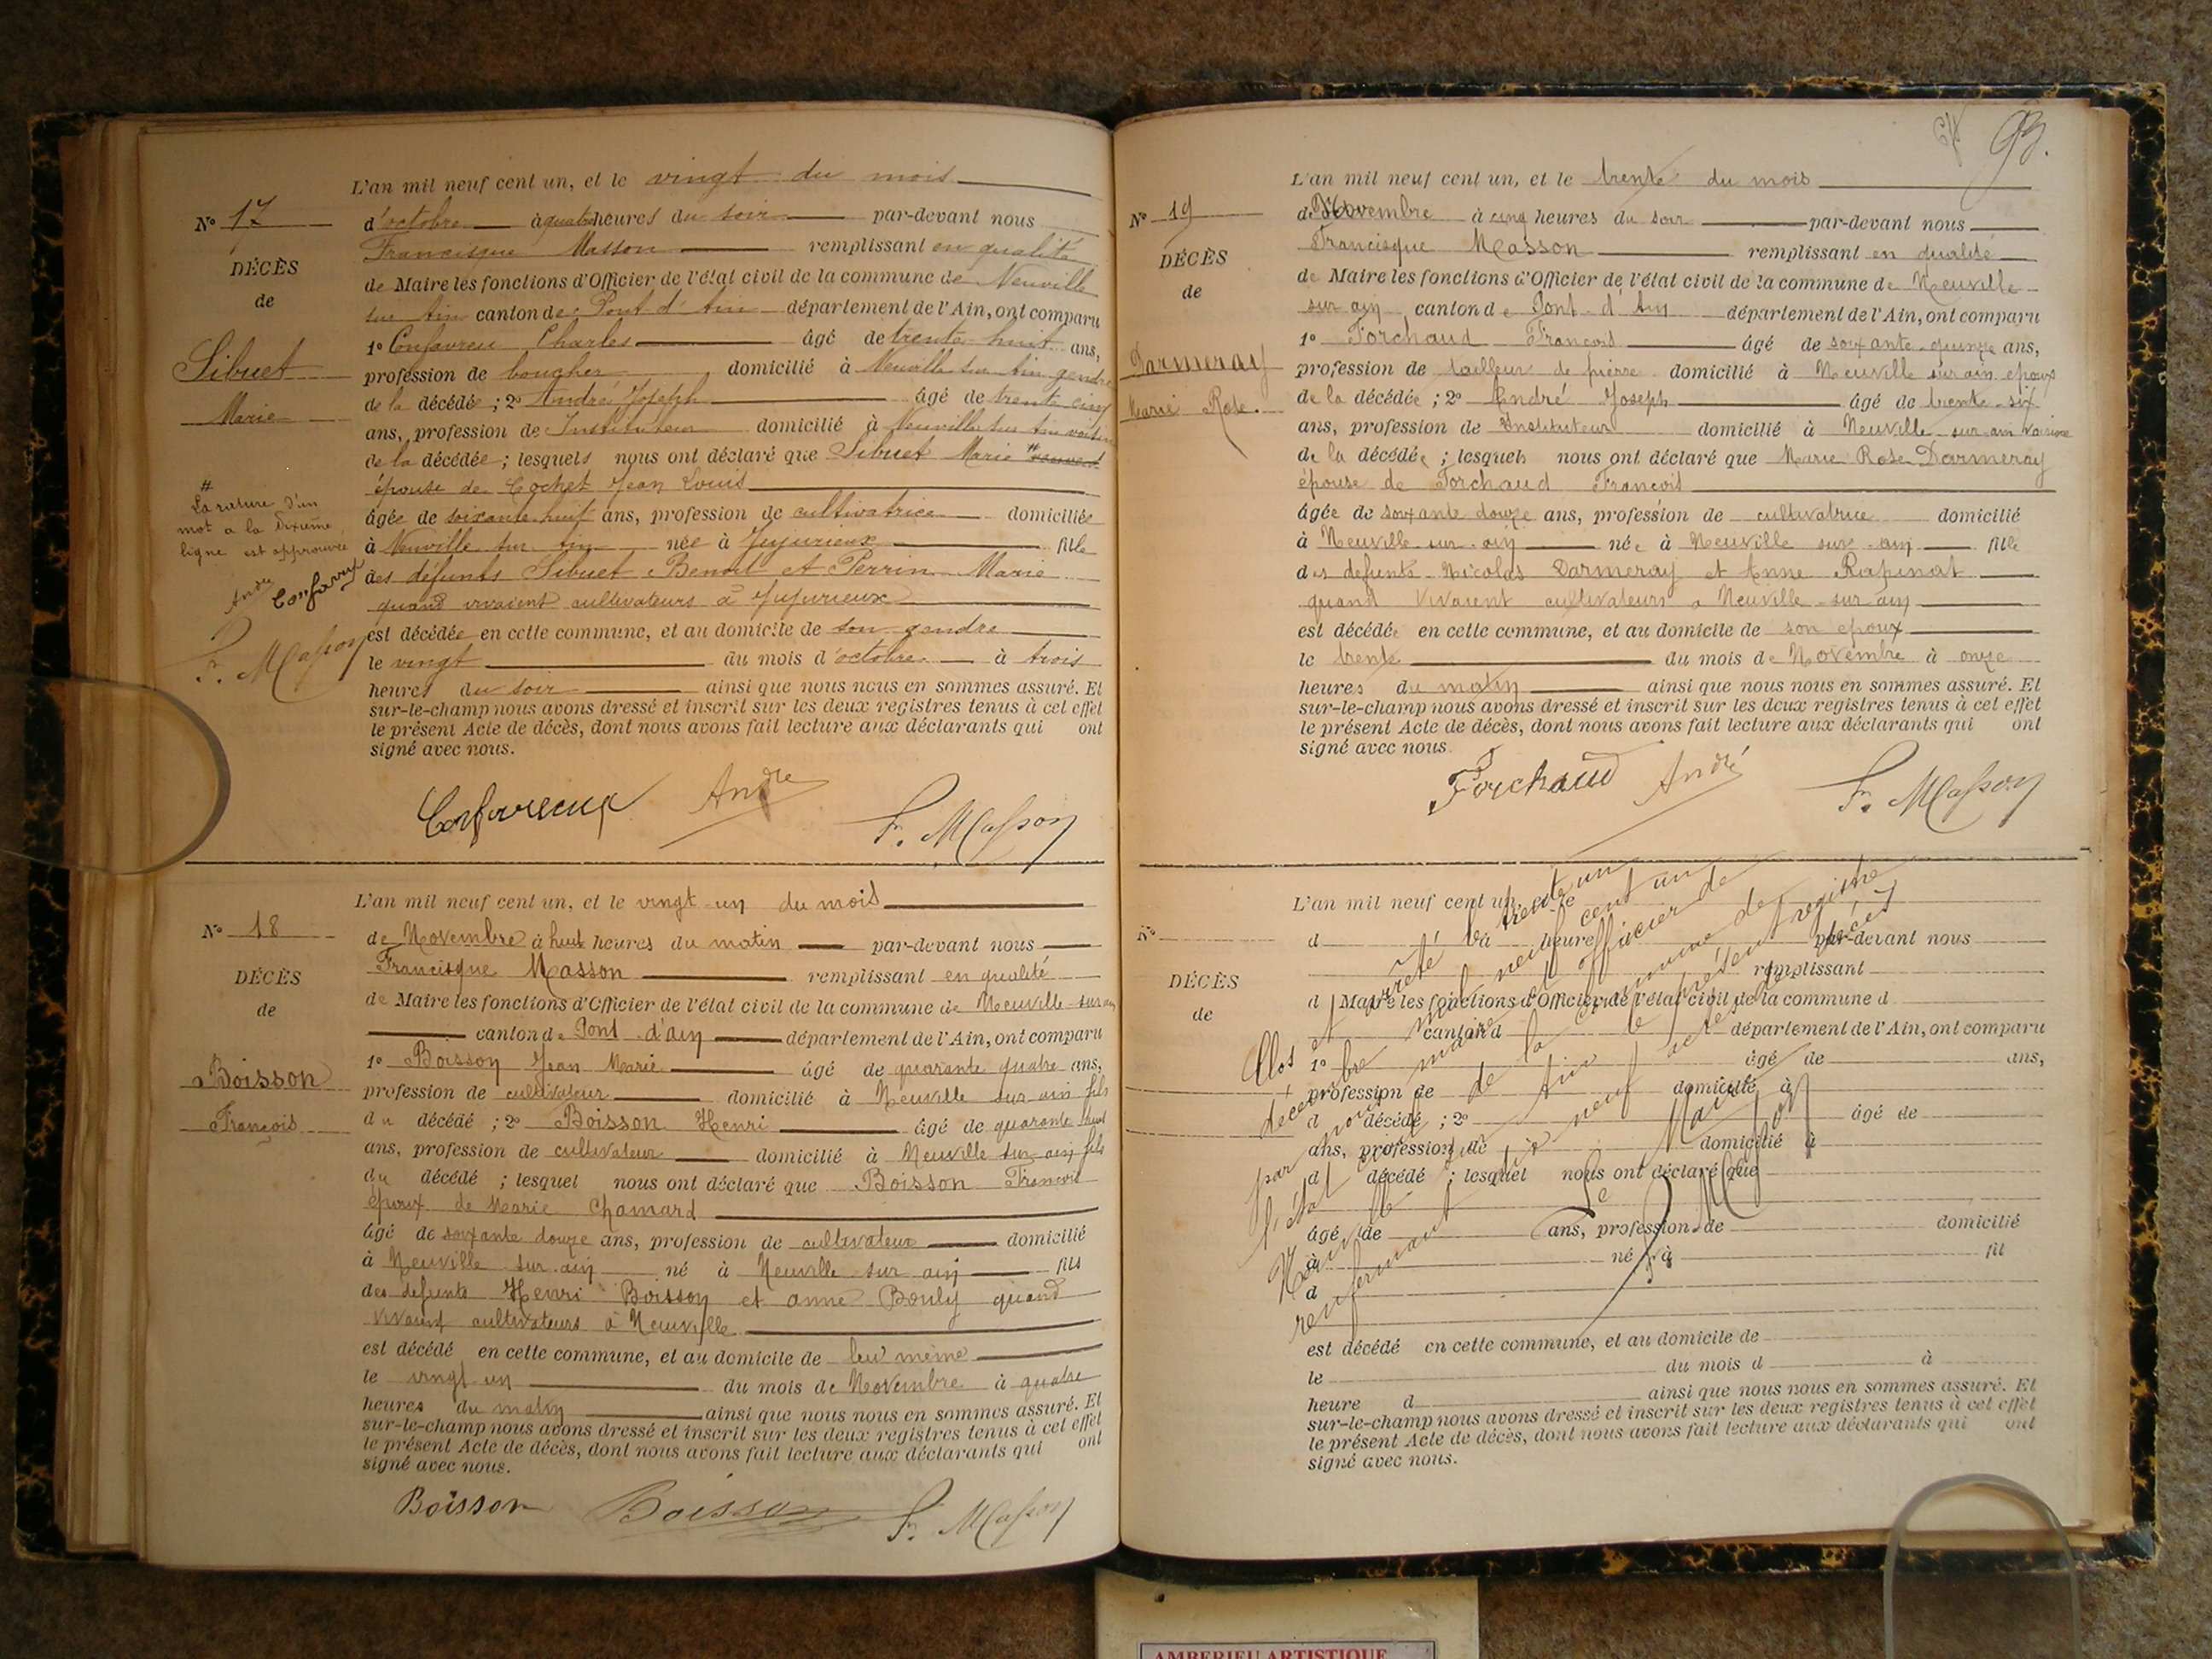 L'an mil neuf cent un, et le vingt du mois
No 17
d'octobre à quatre heures du soir par-devant nous
Francisque Masson remplissant en qualité
DÉCÈS
de Maire les fonctions d'Officier de l'état civil de la commune de Neuville
de
sur Ain canton de Pont d'Ain département de l'Ain, ont comparu
1o Confavreu Charles âgé de trente huit ans,
Sibuet
profession de boucher domicilié à Neuville sur Ain gendre
de la décédée ; 2o André Joseph âgé de trente cinq
Marie
ans, profession de Instituteur domicilié à Neuville sur Ain voisin
de la décédée ; lesquels nous ont déclaré que Sibuet Marie #
épouse de Cochet Jean Louis
#
La rature d'un
mot a la Dixième
ligne est approuvée
âgée de soixante huit ans, profession de cultivatrice domiciliée
à Neuville sur Ain née à Jujurieux fille
des défunts Sibuet Benoit et Perrin Marie
André Confavreux
quand vivaient cultivateurs à Jujurieux
F. Masson
est décédée en cette commune, et au domicile de son gendre
le vingt du mois d'octobre à trois
heures du soir ainsi que nous nous en sommes assuré. Et
sur-le-champ nous avons dressé et inscrit sur les deux registres tenus à cet effet
le présent Acte de décès, dont nous avons fait lecture aux déclarants qui ont
signé avec nous.
Confavreux André F. Masson
L'an mil neuf cent un, et le vingt un du mois
No 18
de Novembre à huit heures du matin par-devant nous
Francisque Masson remplissant en qualité
DÉCÈS
de Maire les fonctions d'Officier de l'état civil de la commune de Neuville sur ain
de
canton de Pont d'ain département de l'Ain, ont comparu
1o Boisson Jean Marie âgé de quarante quatre ans,
Boisson
profession de cultivateur domicilié à Neuville sur ain fils
du décédé ; 2o Boisson Henri âgé de quarante huit
François
ans, profession de cultivateur domicilié à Neuville sur ain fils
du décédé ; lesquel nous ont déclaré que Boisson François
époux de Marie Chamard
âgé de soixante douze ans, profession de cultivateur domicilié
à Neuville sur ain né à Neuville sur ain fils
des defunts Henri Boisson et anne Bouly quand
vivaient cultivateurs à Neuville
est décédé en cette commune, et au domicile de lui même
le vingt un du mois de Novembre à quatre
heures du matin ainsi que nous nous en sommes assuré. Et
sur-le-champ nous avons dressé et inscrit sur les deux registres tenus à cet effet
le présent Acte de décès, dont nous avons fait lecture aux déclarants qui ont
signé avec nous.
Boisson Boisson F. Masson
93.
L'an mil neuf cent un, et le trente du mois
No 19
de Novembre à cinq heures du soir par-devant nous
Francisque Masson remplissant en qualité
DÉCÈS
de Maire les fonctions d'Officier de l'état civil de la commune de Neuville
de
sur ain canton de Pont d'Ain département de l'Ain, ont comparu
1o Forchaud François âgé de soixante quinze ans,
Darmeray
profession de tailleur de pierre domicilié à Neuville sur ain époux
Marie Rose.
de la décédée ; 2o André Joseph âgé de trente six
ans, profession de Instituteur domicilié à Neuville sur ain
de la décédée ; lesquels nous ont déclaré que Marie Rose Darmeray
épouse de Forchaud François
âgée de soixante douze ans, profession de cultivatrice domicilié
à Neuville sur ain née à Neuville sur ain fille
des defunts Nicolas Darmeray et Anne Rapinat
quand vivaient cultivateurs à Neuville sur ain
est décédée en cette commune, et au domicile de son époux
le trente du mois de Novembre à onze
heures du matin ainsi que nous nous en sommes assuré. Et
sur-le-champ nous avons dressé et inscrit sur les deux registres tenus à cet effet
le présent Acte de décès, dont nous avons fait lecture aux déclarants qui ont
signé avec nous.
Forchaud André F. Masson
L'an mil neuf cent un, et le
No
d à heure par-devant nous
remplissant
DÉCÈS
d Maire les fonctions d'Officier de l'état civil de la commune d
de
canton d département de l'Ain, ont comparu
1o âgé de ans,
profession de domicilié à
d décédé ; 2o âgé de
ans, profession de domicilié à
d décédé ; lesquel nous ont déclaré que
âgé de ans, profession de domicilié
à né à fil
d
est décédé en cette commune, et au domicile de
le du mois d à
heure d ainsi que nous nous en sommes assuré. Et
sur-le-champ nous avons dressé et inscrit sur les deux registres tenus à cet effet
le présent Acte de décès, dont nous avons fait lecture aux déclarants qui ont
signé avec nous.
Clos et arrêté le trente un
décembre mil neuf cent un
par nous maire et officier de
l'état civil de la commune de
Neuville sur Ain le présent registre
renfermant dix neuf actes de décès
Le Maire
F. Masson
AMBERIEU ARTISTIQUE